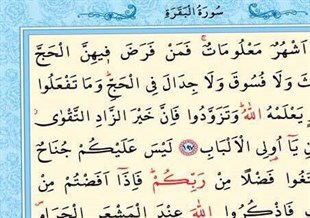 سُورَةُ الْبَقَرَةِ
اَشْهُرٌ مَعْلُومَاتٌۚ فَمَنْ فَرَضَ فٖيهِنَّ الْحَجَّ
وَلَا فُسُوقَ وَلَا جِدَالَ فِي الْحَجِّۜ وَمَا تَفْعَلُوا
يَعْلَمْهُ اللّٰهُۜ وَتَزَوَّدُوا فَاِنَّ خَيْرَ الزَّادِ التَّقْوٰىۘ
يَٓا اُو۬لِي الْاَلْبَابِ ﴿١٩٧﴾ لَيْسَ عَلَيْكُمْ جُنَاحٌ
فَضْلاً مِنْ رَبِّكُمْۜ فَاِذَٓا اَفَضْتُمْ مِنْ
فَاذْكُرُوا اللّٰهَ عِنْدَ الْمَشْعَرِ الْحَرَامِۖ